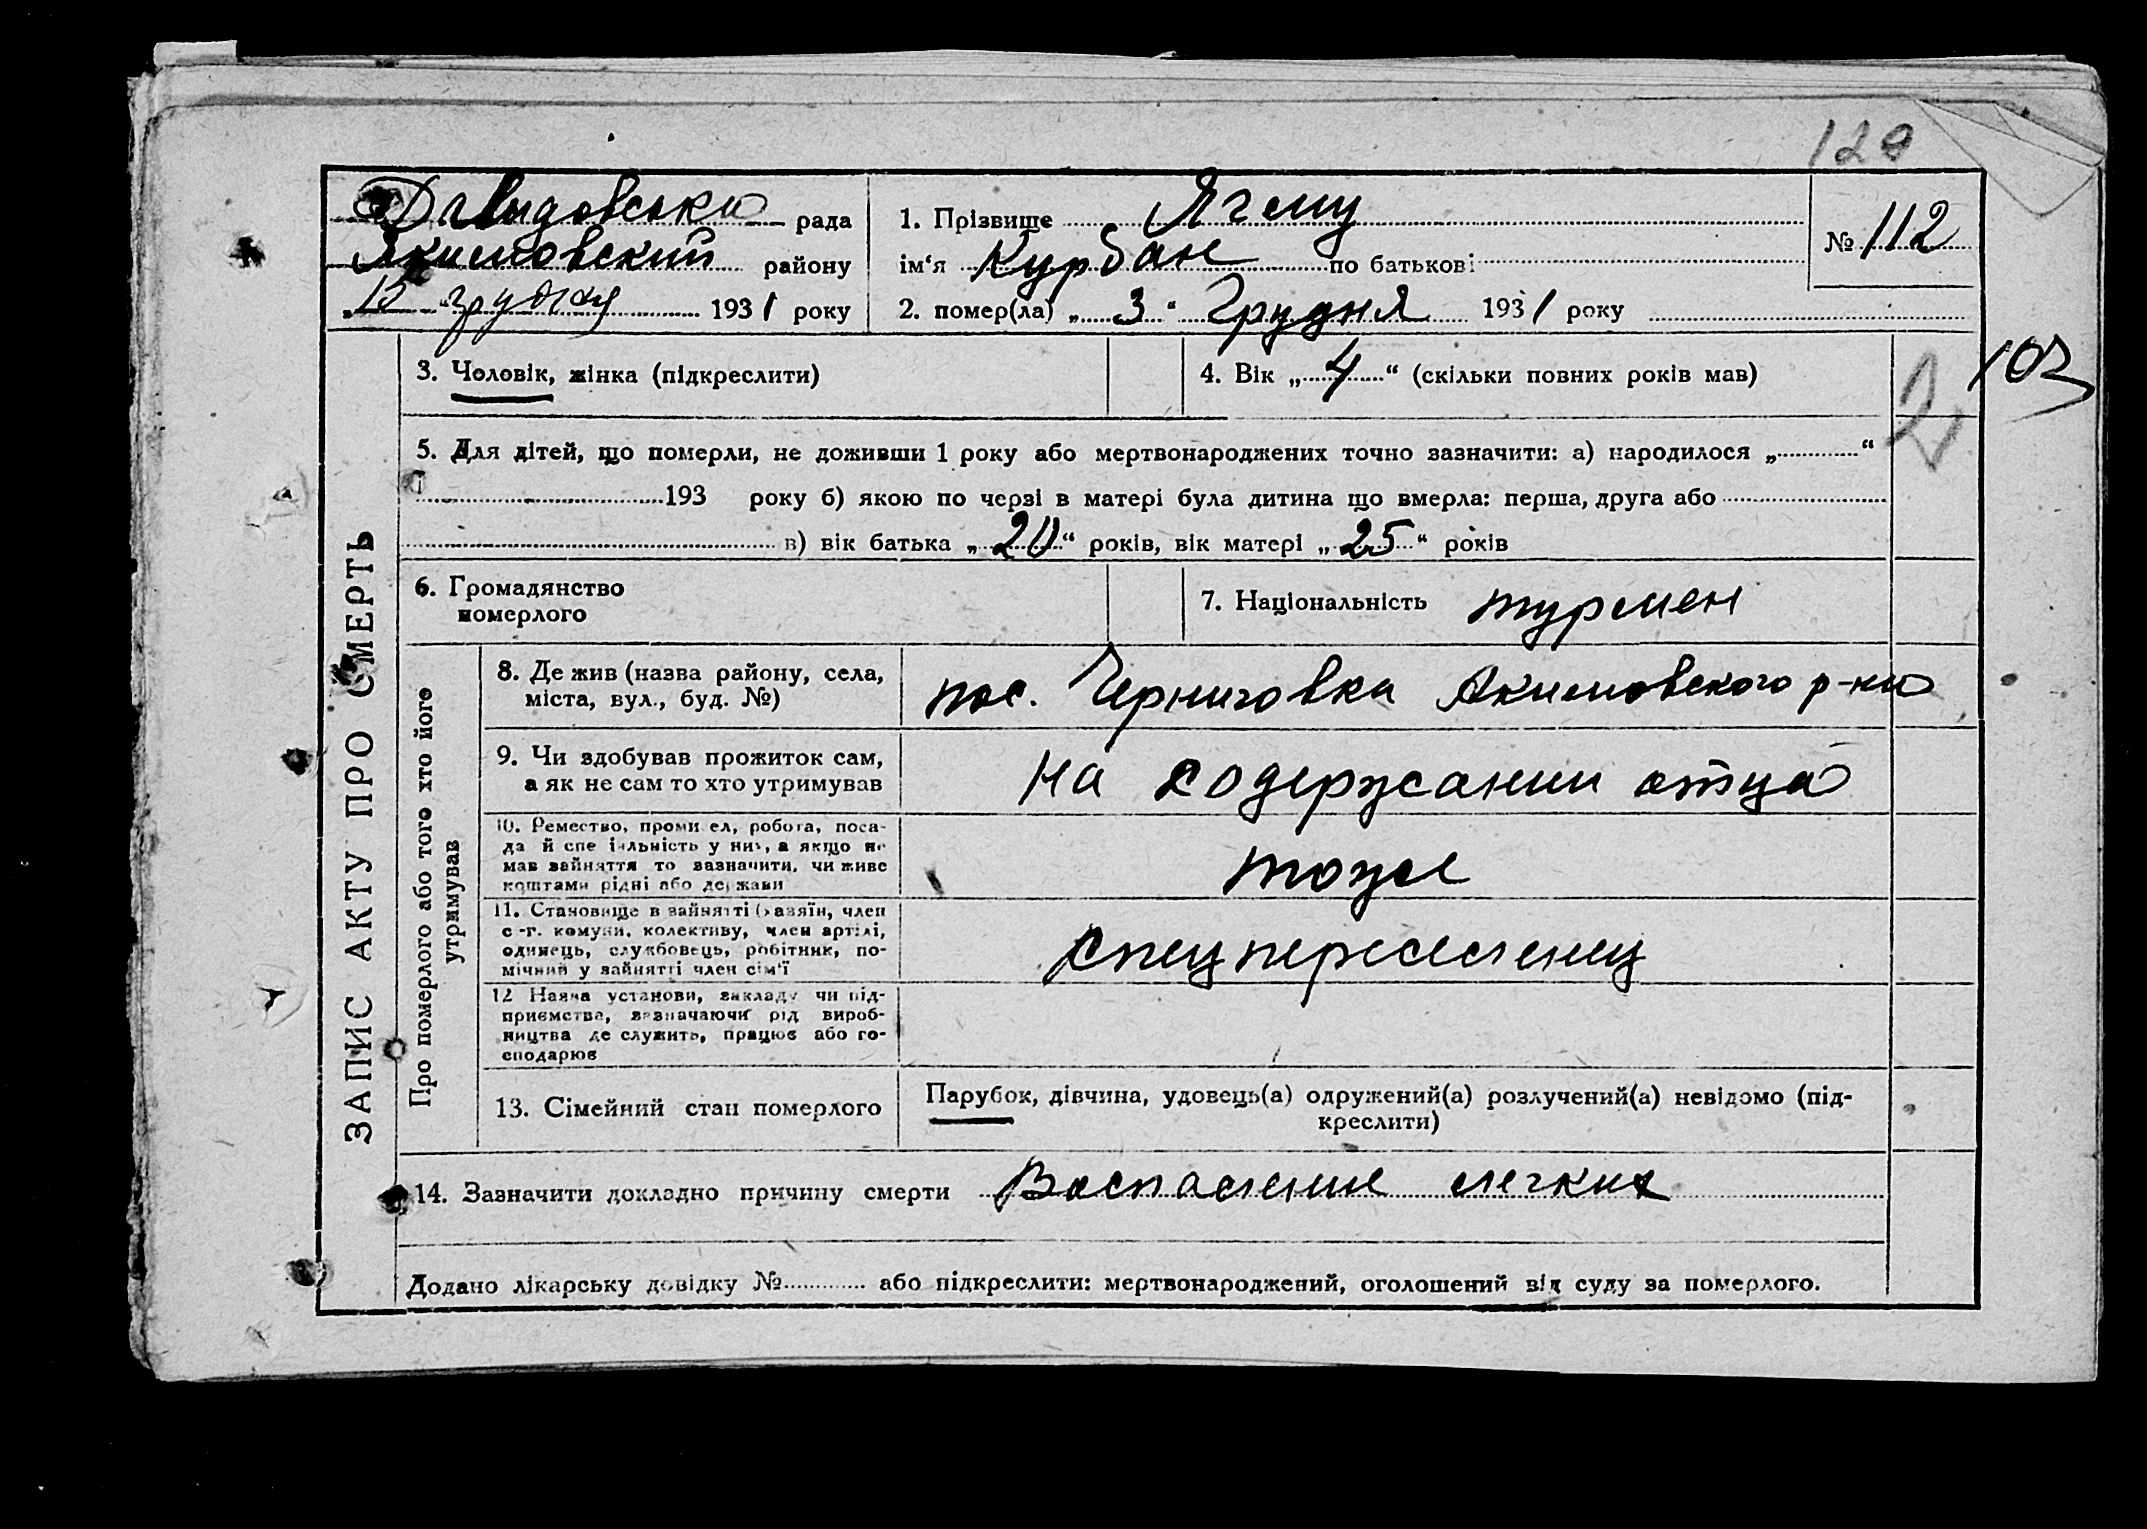 120
Давидовська рада
Якимовский району
„13 " грудня 1931 року
1. Прізвище Ягму
ім‘я Курбан по батькові
2. помер(ла) „ 3 “ Грудня 1931 року
№ 112
103
2
ЗАПИС АКТУ ПРО СМЕРТЬ
3. Чоловік, жінка (підкреслити)
4. Вік „ 4 “ (скільки повних років мав)
5. Для дітей, що померли, не доживши 1 року або мертвонароджених точно зазначити: а) народилося „ “
193 року б) якою по черзі в матері була дитина що вмерла: перша, друга або
в) вік батька „ 20 “ років, вік матері „ 25 “ років
6. Громадянство
померлого
7. Національність турмен
Про померлого або того хто його
утримував
8. Де жив (назва району, села,
міста, вул., буд. №)
пос. Черниговка Акимовского р-на
9. Чи здобував прожиток сам,
а як не сам то хто утримував
На содержании отца
10. Ремество, промисел, робота, поса-
да й спеціяльність у них, а якщо не
мав зайняття то зазначити, чи живе
коштами рідні або держави
тоже
11. Становище в зайнятті (хазяїн, член
с-г. комуни, колективу, член артілі,
одинець, службовець, робітник, по-
мічний у зайнятті член сім‘ї
спецпереселенец
12 Назва установи, закладу чи під-
приємства, зазначаючи рід вироб-
ництва де служить, працює або го-
сподарює
13. Сімейний стан померлого
Парубок, дівчина, удовець(а) одружений(а) розлучений(а) невідомо (під-
креслити)
14. Зазначити докладно причину смерти Воспаление легких
Додано лікарську довідку № або підкреслити: мертвонароджений, оголошений від суду за померлого.